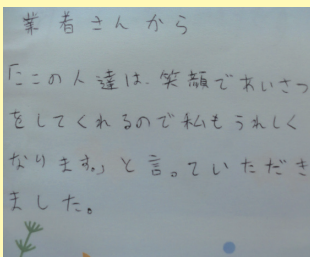 業者さんから
「ここの人達は、笑顔であいさつ
をしてくれるので私もうれしく
なります。」と言っていただき
ました。